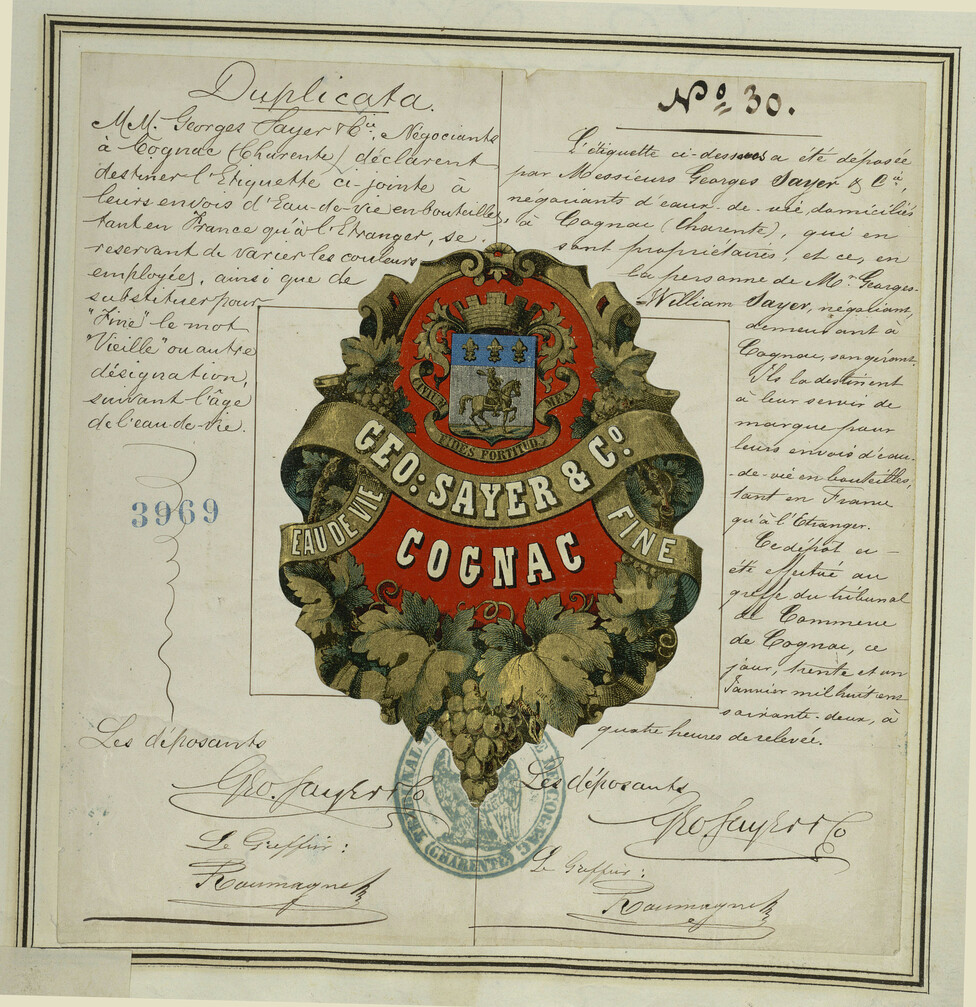 Duplicata.
MM. Georges Sayer & Cie, Négociants
à Cognac (Charente) déclarent
destiner l'Etiquette ci-jointe à
leurs envois d'Eau-de-vie en bouteilles,
tant en France qu'à l'Etranger, se
reservant de varier les couleurs
employées, ainsi que de
substituer pour
"Fine" le mot
"Vieille" ou autre
désignation,
suivant l'âge
de l'eau-de-vie.
3969
Les déposants
Geo. Sayer & Co
Le Greffier:
Roumagne
No 30.
L'étiquette ci-dessus a été déposée
par Messieurs Georges Sayer & Cie,
négociants d'eaux-de-vie, domiciliés
à Cognac (Charente), qui en
sont propriétaires, et ce, en
la personne de Mr. Georges-
William Sayer, négociant,
demeurant à
Cognac, son gérant.
Ils la destinent
à leur servir de
marque pour
leurs envois d'eau-
de-vie en bouteilles,
tant en France
qu'à l'Etranger.
Ce dépôt a
été effectué au
greffe du tribunal
de Commerce
de Cognac, ce
jour, trente et un
Janvier mil huit cent
soixante-deux, à
quatre heures de relevée.
Les déposants
Geo Sayer & Co
Le Greffier:
Roumagne
MEA
FIDES FORTITUDO
GEO: SAYER & Co.
EAU DE VIE
FINE
COGNAC
TRIBUNAL DE COMMERCE
(CHARENTE)